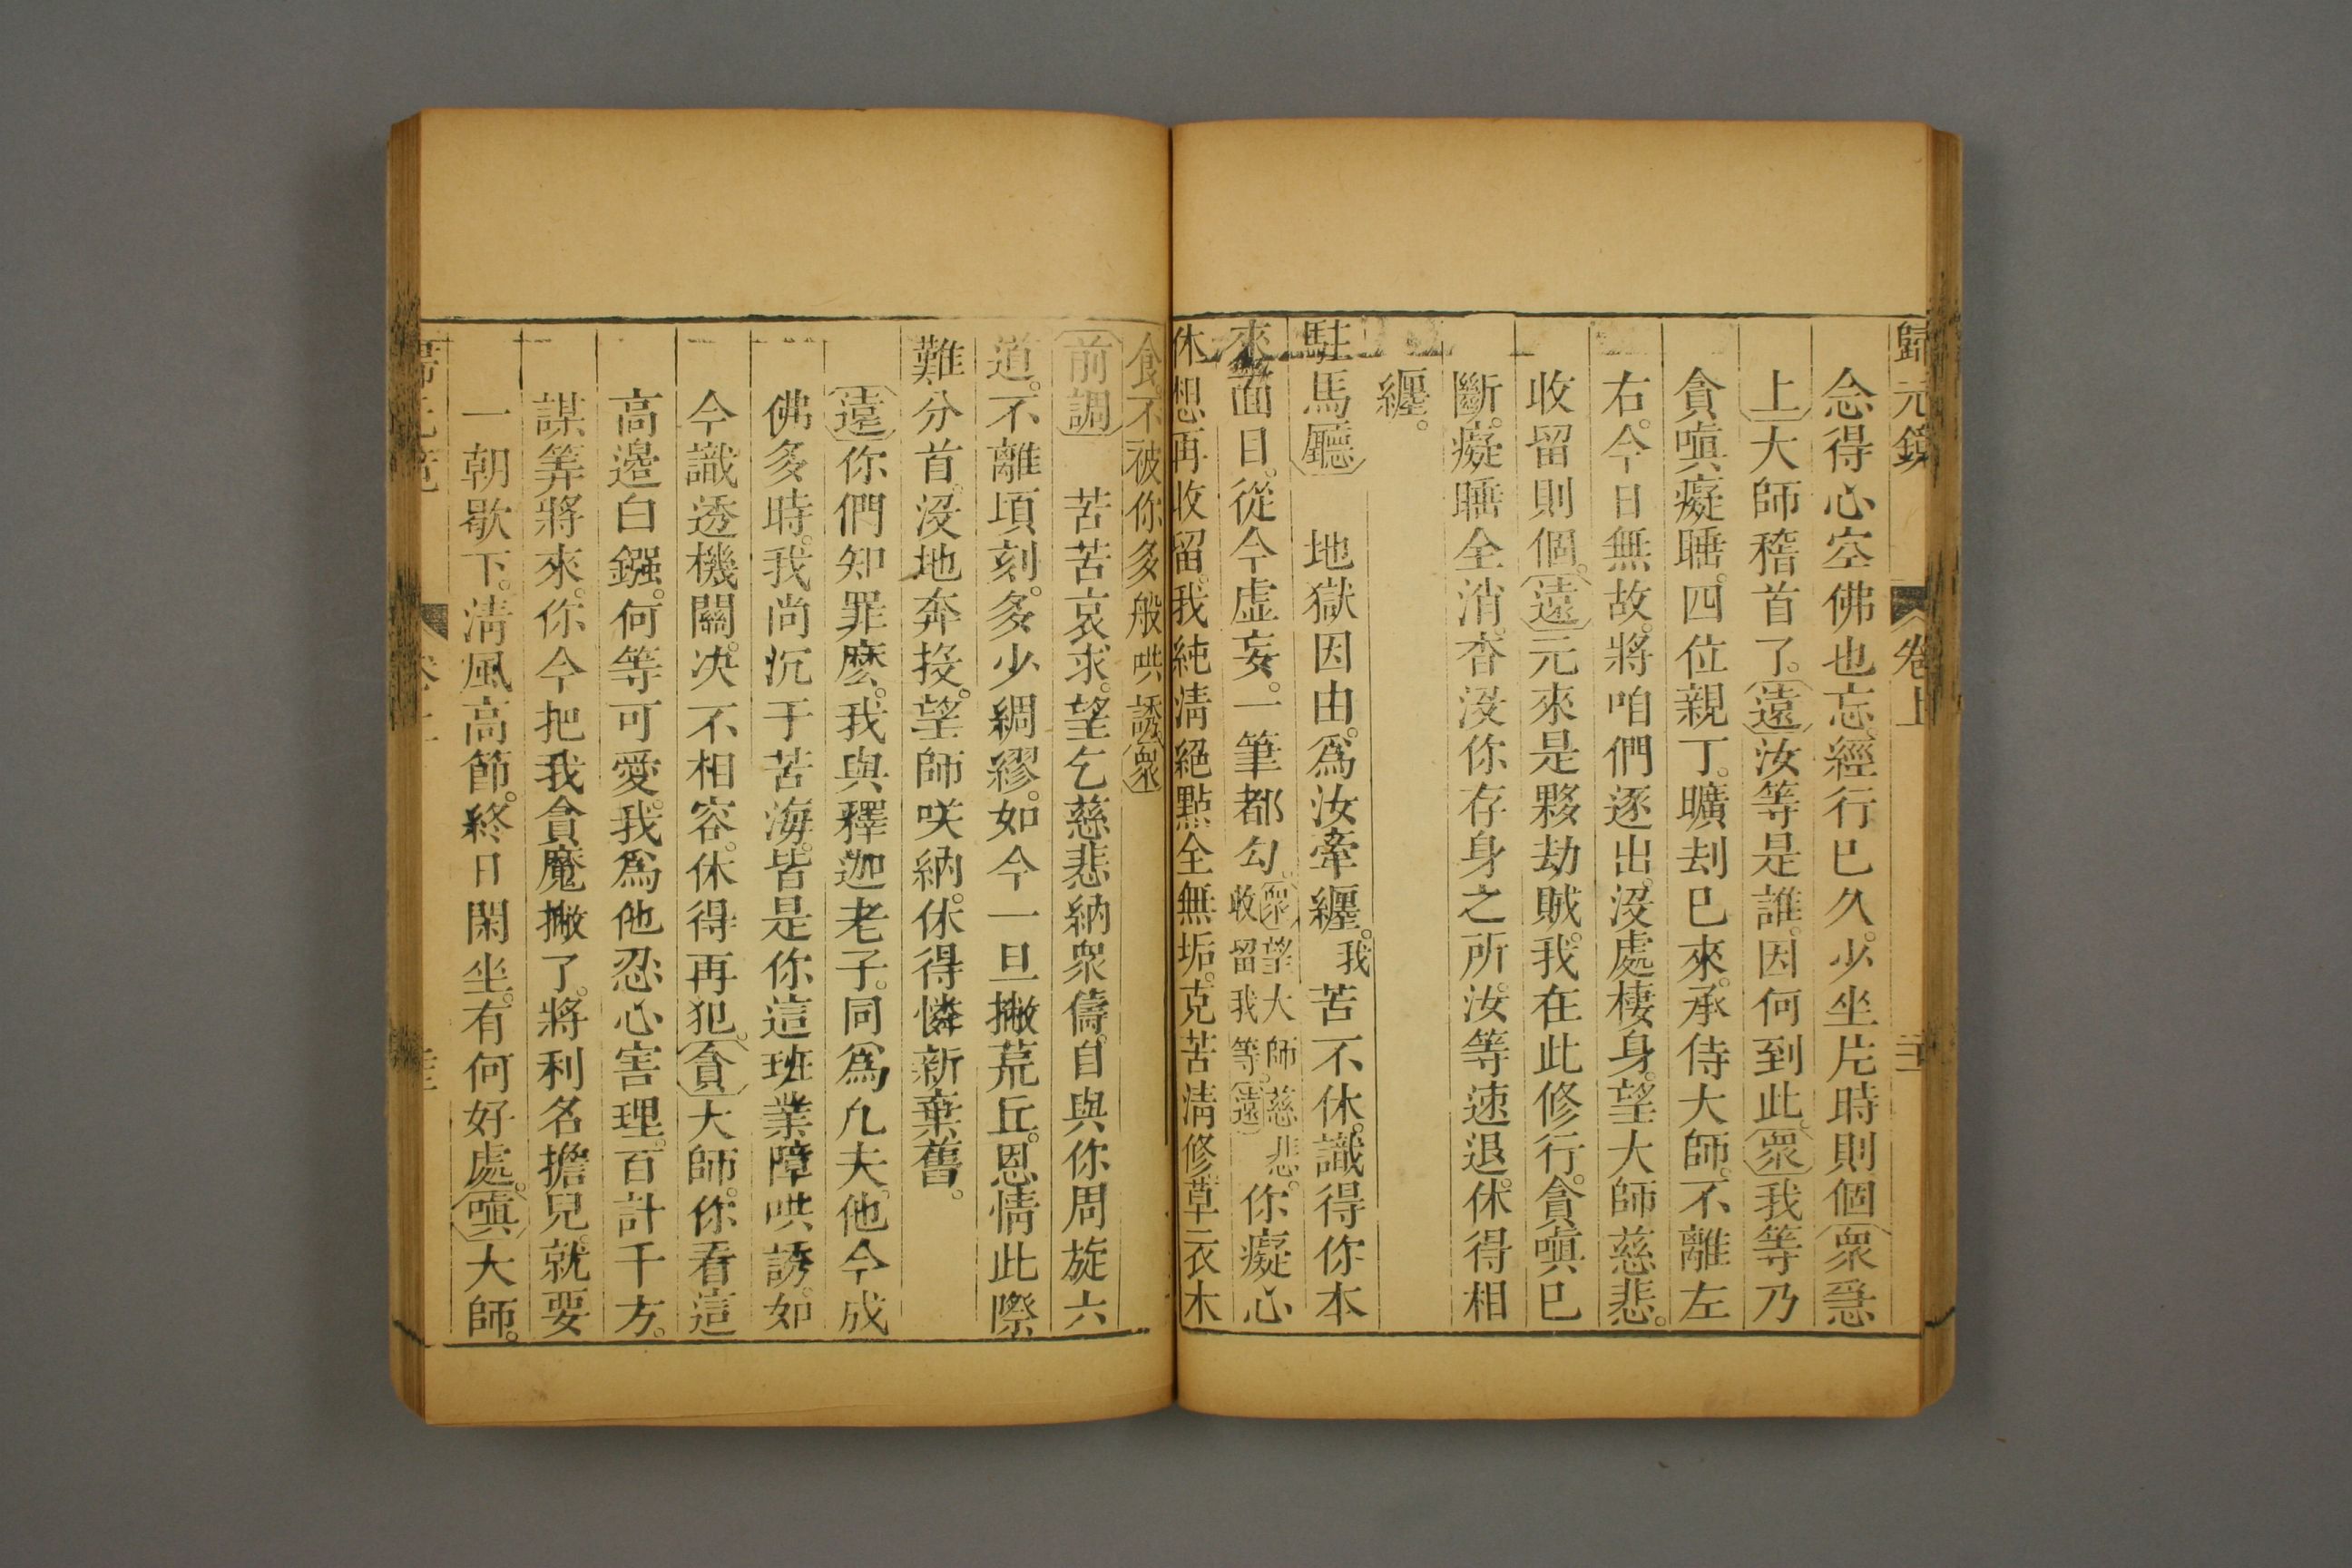 歸元鏡 卷上
念得心空佛也忘。經行已久。少坐片時則個衆急
上大師稽首了。遠汝等是誰。因何到此。衆我等乃
貪嗔癡睡。四位親丁。曠刦已來。承侍大師。不離左
右。今日無故。將咱們逐出。沒處棲身。望大師慈悲。
收留則個。遠元來是夥劫賊。我在此修行。貪嗔已
斷。癡睡全消。杳沒你存身之所。汝等速退。休得相
纏。
駐馬廳 地獄因由。爲汝牽纏。我苦不休。識得你本
來面目。從今虛妄。一筆都勾。衆望大師慈悲。收留我等。遠你癡心
休想再收留。我純淸絕點全無垢。克苦淸修。草衣木
食。不被你多般哄誘衆
前調 苦苦哀求。望乞慈悲納衆儔。自與你周旋六
道。不離頃刻。多少綢繆。如今一旦撇荒丘。恩情此際
難分首。沒地奔投。望師咲納。休得憐新棄舊。
遠你們知罪麽。我與釋迦老子。同爲凡夫。他今成
佛多時。我尚沉于苦海。皆是你這班業障哄誘。如
今識透機關。决不相容。休得再犯。貪大師。你看這
高邊白鏹。何等可愛。我爲他忍心害理。百計千方。
謀筭將來。你今把我貪魔撇了。將利名擔兒。就要
一朝歇下。淸風高節。終日閑坐。有何好處。嗔大師。